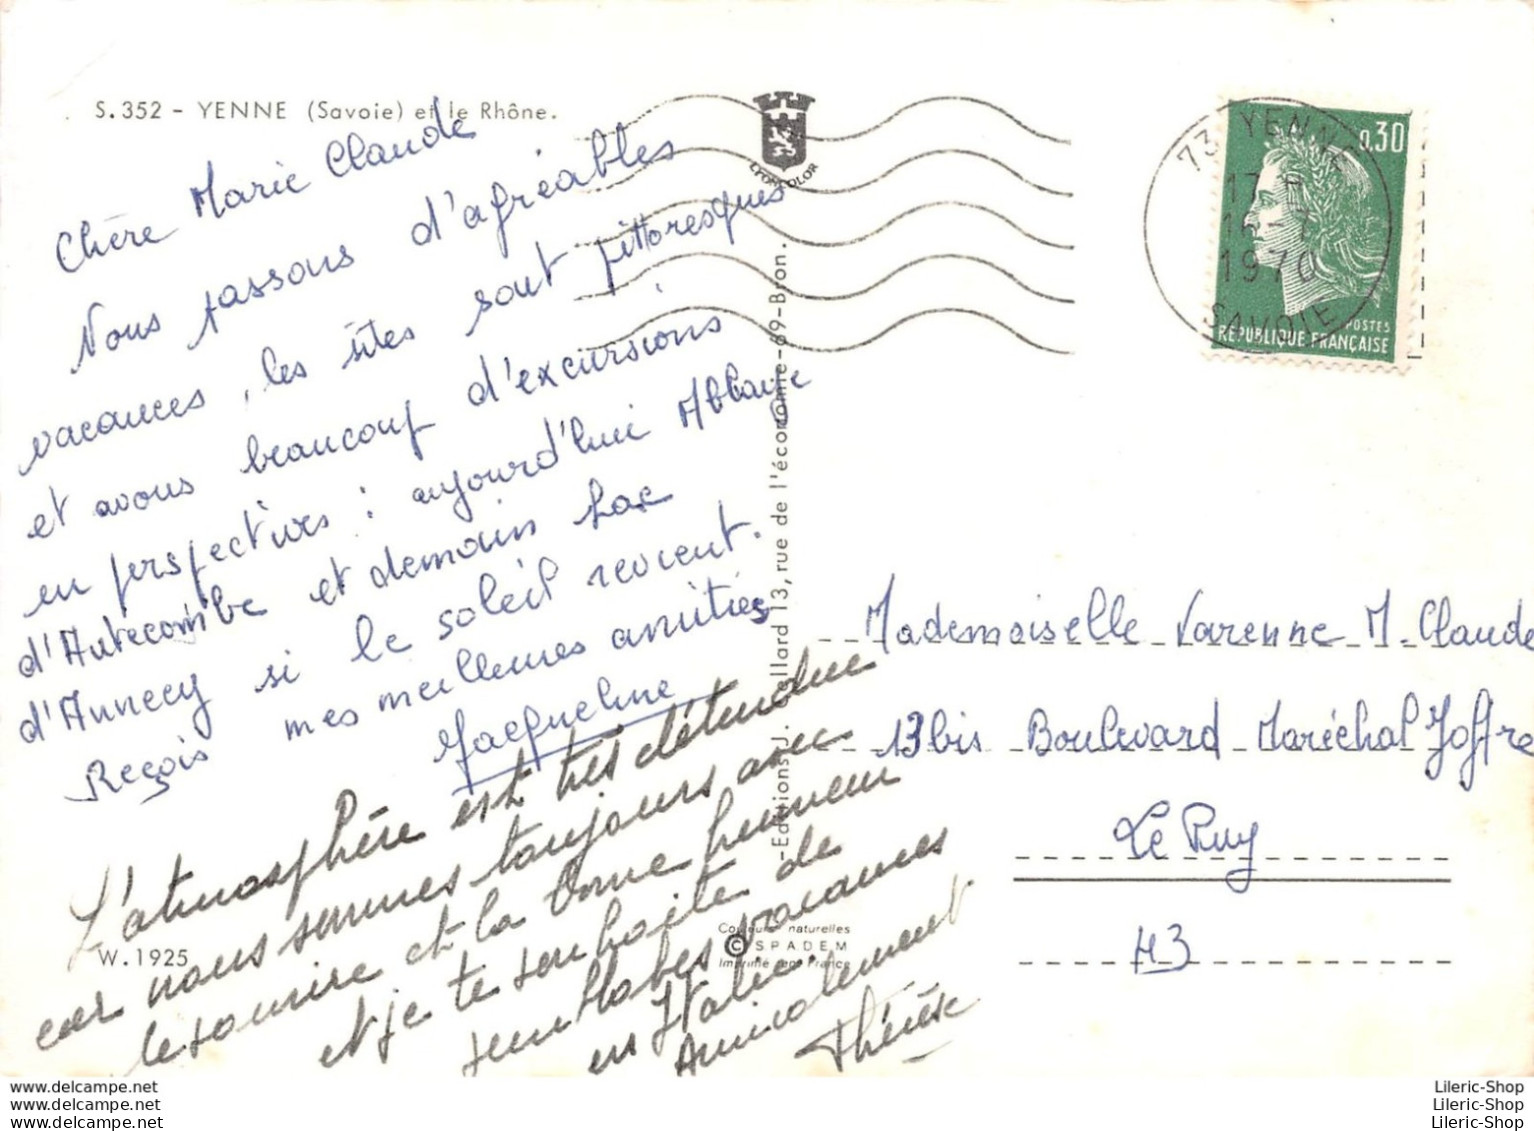 S. 352 - YENNE (Savoie) et le Rhône.
Chère Marie Claude
Nous passons d'agréables
vacances, les sites sont pittoresques
et avons beaucoup d'excursions
en perspectives : aujourd'hui Abbaye
d'Autecombe et demain Lac
d'Annecy si le soleil revient.
Reçois mes meilleures amitiés
Jacqueline
L'atmosphère est très détendue
car nous sommes toujours avec
le sourire et la bonne humeur
et je te souhaite de
semblables vacances
en Italie.
Amicalement
Thérèse
W. 1925
LYONCOLOR
-Editions J. llard 13, rue de l'économie-69-Bron.
Couleurs naturelles
© SPADEM
Imprimé en France
73 YENNE
17 H
14-7
1970
SAVOIE
0,30
POSTES
RÉPUBLIQUE FRANÇAISE
Mademoiselle Varenne M. Claude
13bis Boulevard Maréchal Joffre
Le Puy
43
Lileric-Shop
Lileric-Shop
Lileric-Shop
Lileric-Shop
Lileric-Shop
Lileric-Shop